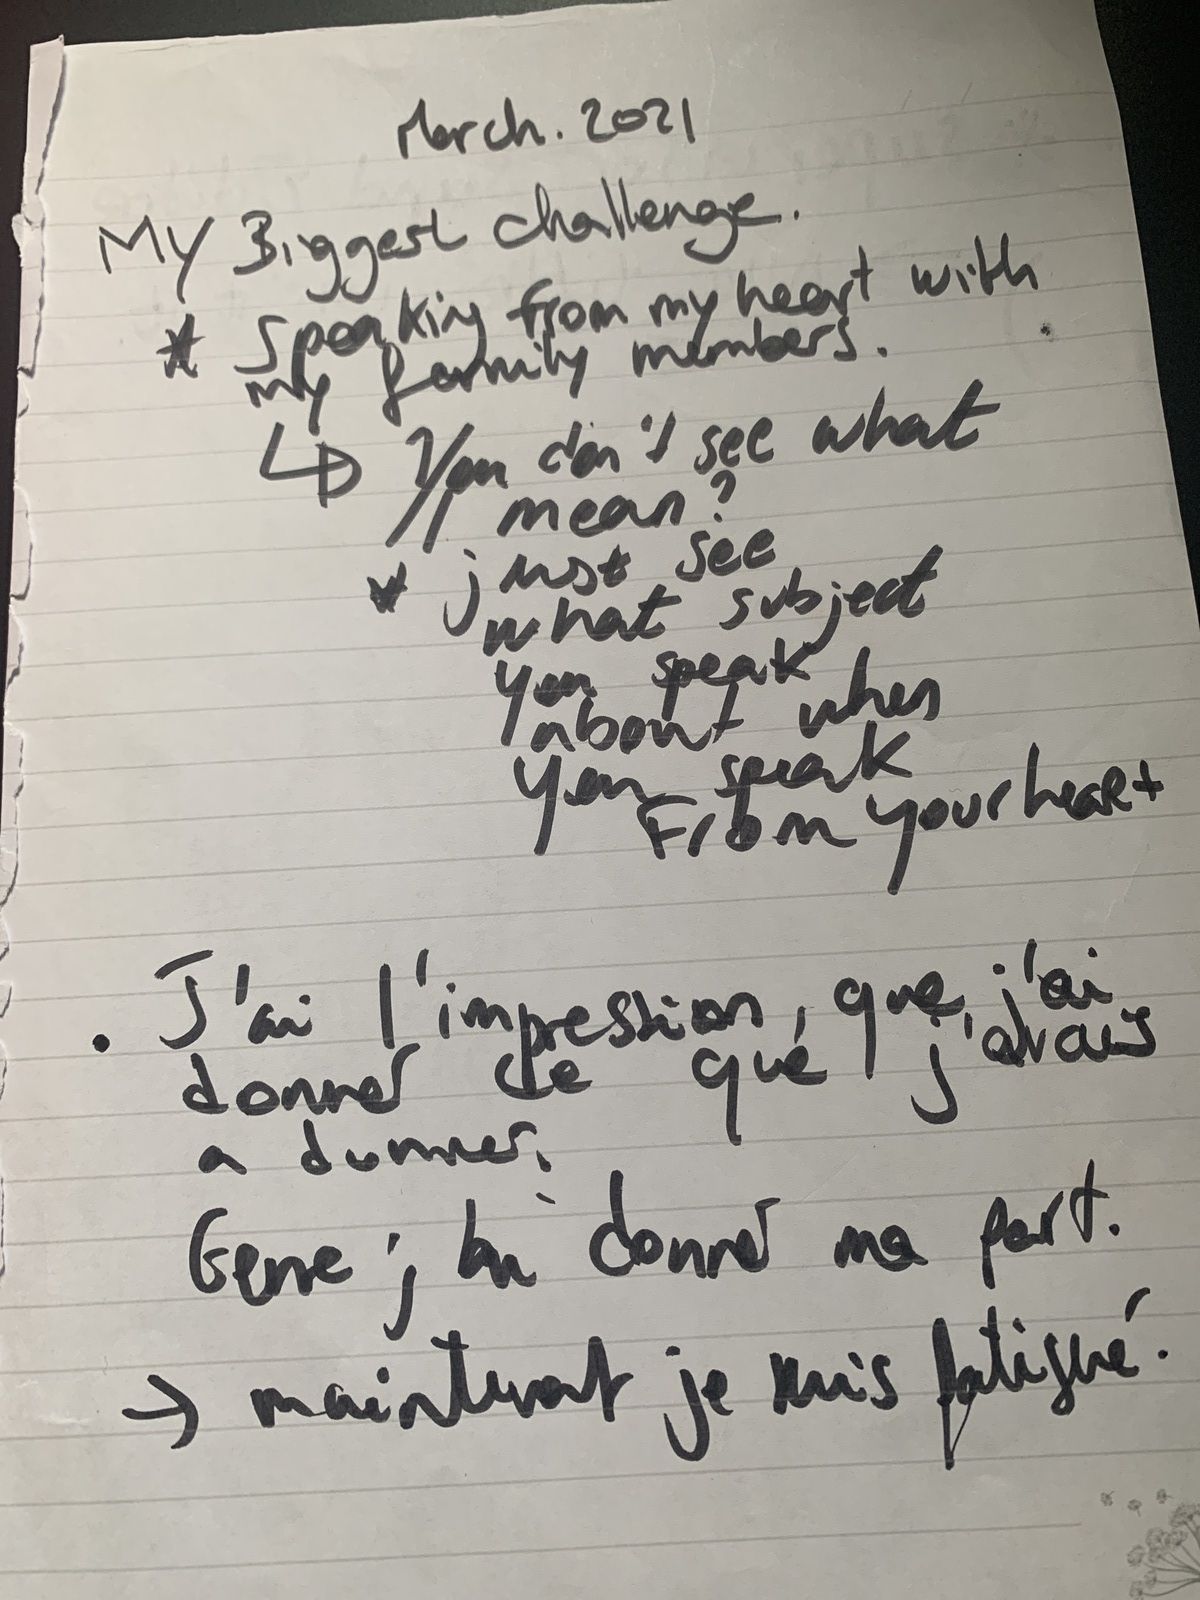 March. 2021
My Biggest challenge.
* Speaking from my heart with
my family members.
↳ You don't see what
mean?
* just see
what subject
you speak
about when
you speak
From your heart
. J'ai l'impression, que, j'ai
donner ce que j'avais
a donner.
Genre j'ai donner ma part.
→ maintenant je suis fatigué.